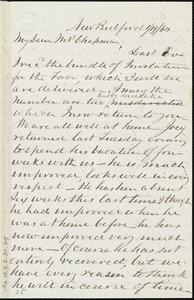 New Bedford 1/19/60
My Dear Mrs Chapman,
Last Eve
I rec'd the bundle of Invitations
for the Fair, which I will see
are delivered. Among the
number are two misdirected
which I now return to you
We are all well at home, Joey
returned last Tuesday
to spend his vacation of
weeks with us — he is much
improved, looks well in every
respect — He has been absent
Six weeks this last time & though
he had improved when he
was at home before, he has
now improved very much
more — Of course he has not
entirely recovered, but we
have every reason to think
he will in course of time